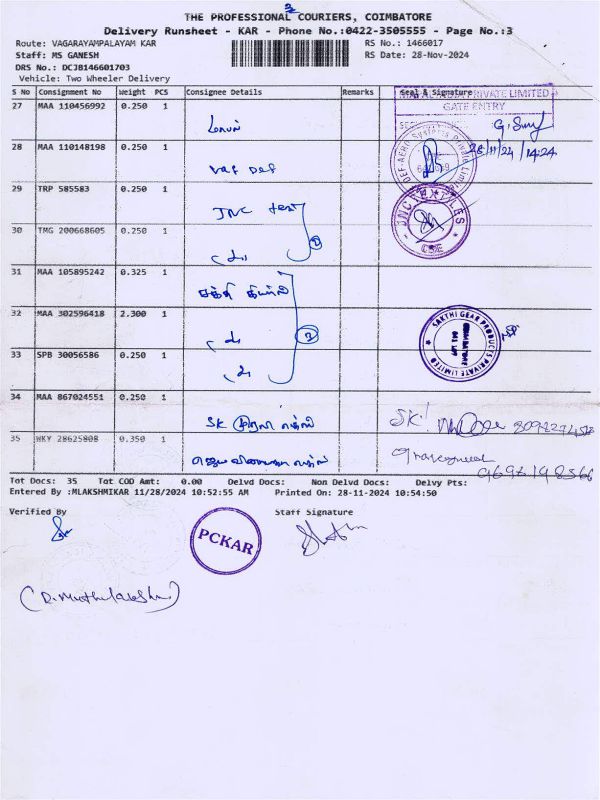 THE PROFESSIONAL COURIERS, COIMBATORE
Delivery Runsheet - KAR - Phone No.:0422-3505555 - Page No.:3
Route: VAGARAYAMPALAYAM KAR
RS No.: 1466017
Staff: MS GANESH
RS Date: 28-Nov-2024
DRS No.: DCJB146601703
Vehicle: Two Wheeler Delivery
S No Consignment No Weight PCS Consignee Details Remarks Seal & Signature
PRIVATE LIMITED
GATE ENTRY
27 MAA 110456992 0.250 1
28/11/24 / 14:24
28 MAA 110148198 0.250 1
DEF-AERO Systems Private Limited
29 TRP 585583 0.250 1
JNC
JNC TEXTILES
CBE
30 TMG 200668605 0.250 1
31 MAA 105895242 0.325 1
சக்தி கியர்ஸ்
32 MAA 302596418 2.300 1
SAKTHI GEAR PRODUCTS PRIVATE LIMITED
COIMBATORE
33 SPB 30056586 0.250 1
34 MAA 867024551 0.250 1
SK
SK!
35 WKY 28625808 0.350 1
Tot Docs: 35 Tot COD Amt: 0.00 Delvd Docs: Non Delvd Docs: Delvy Pts:
Entered By :MLAKSHMIKAR 11/28/2024 10:52:55 AM Printed On: 28-11-2024 10:54:50
Verified By
Staff Signature
PCKAR